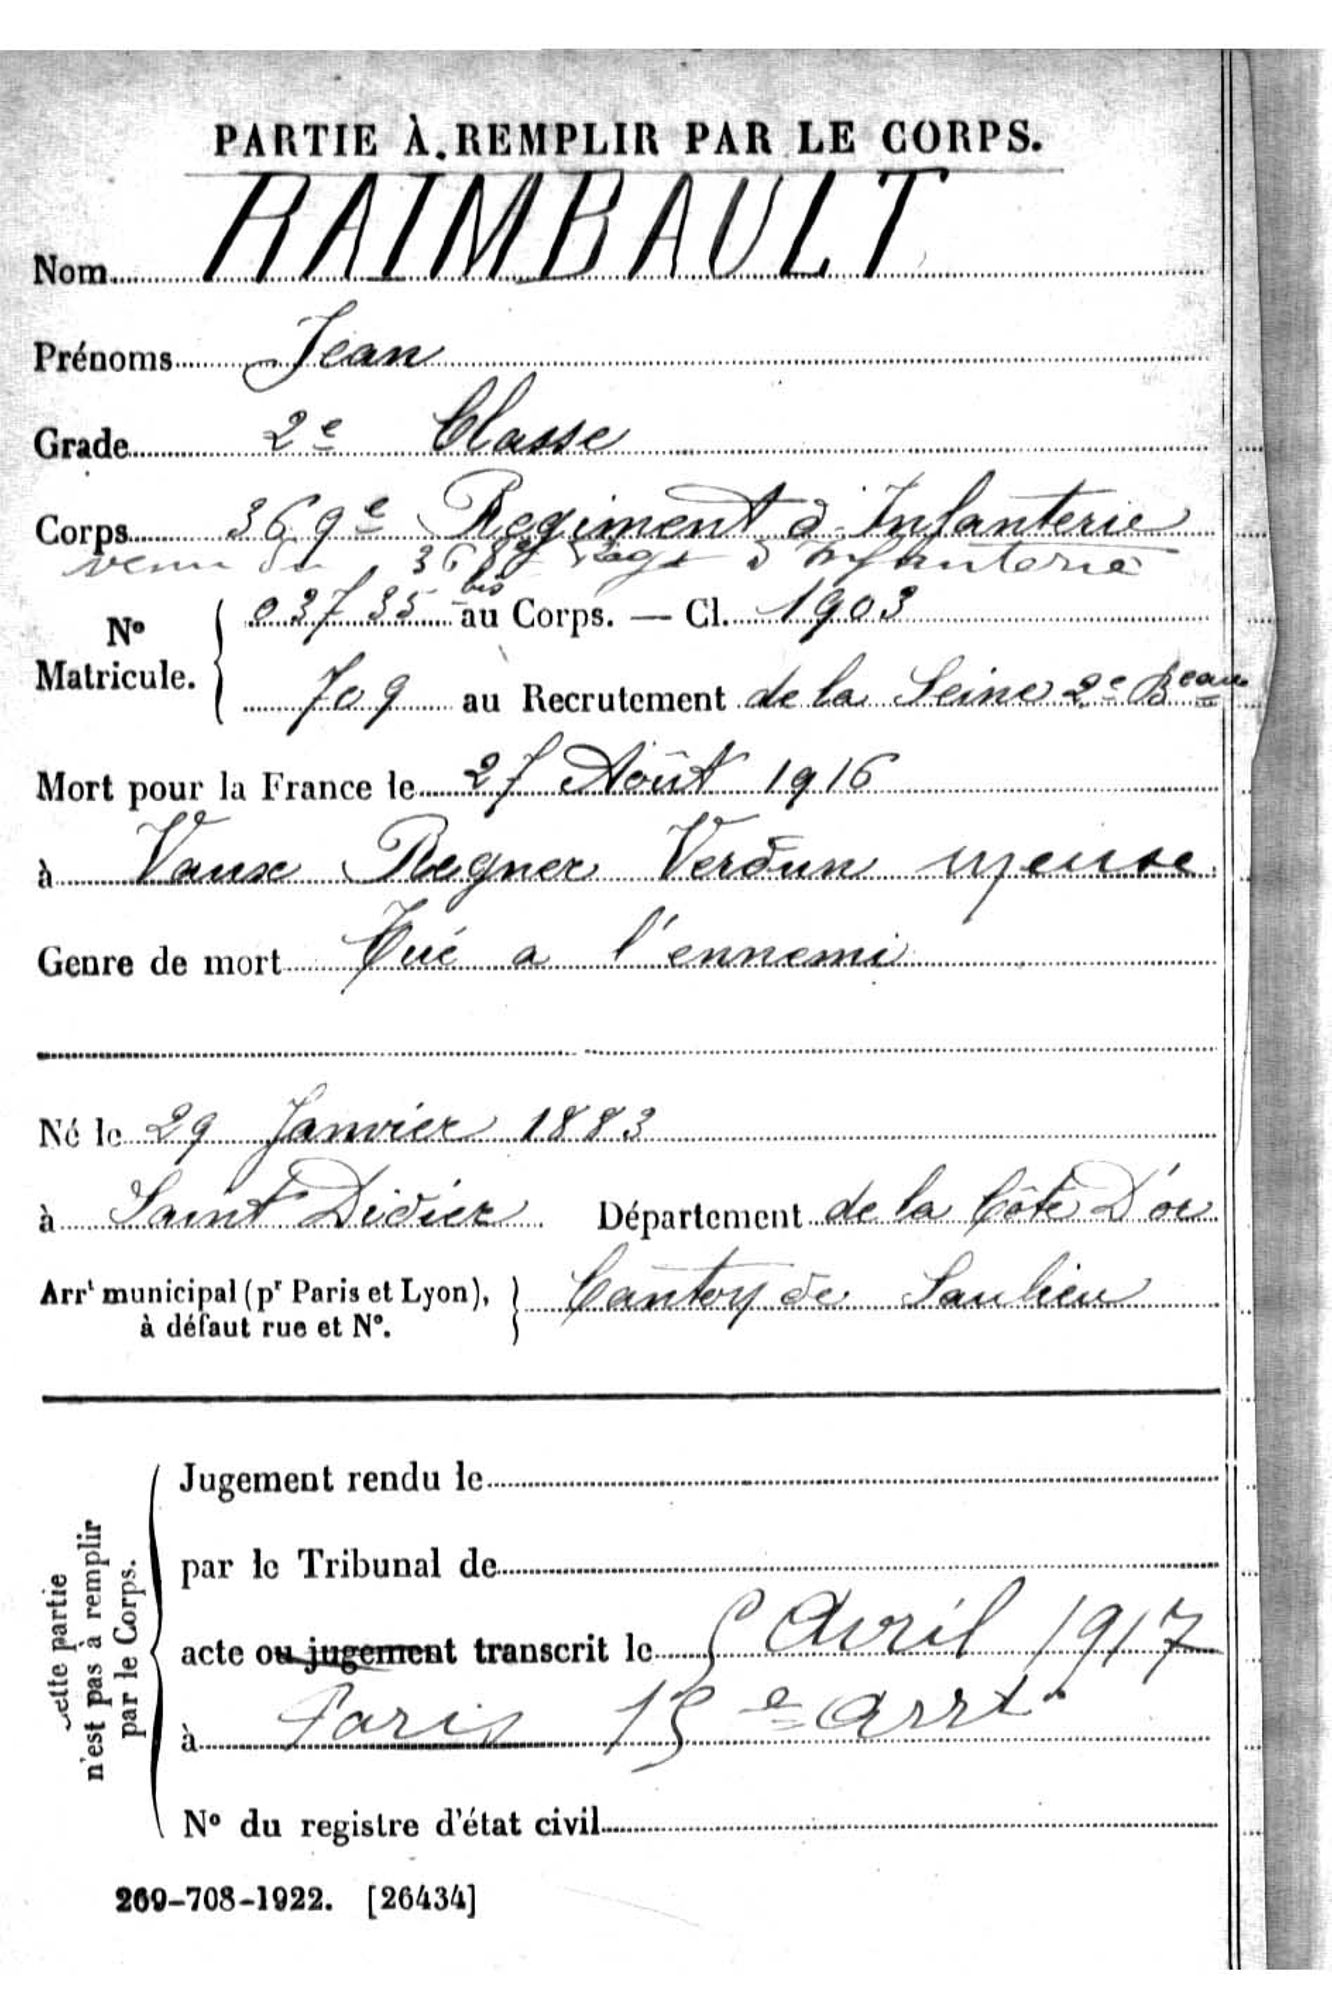 PARTIE À REMPLIR PAR LE CORPS.
Nom RAIMBAULT
Prénoms Jean
Grade 2e Classe
Corps 369e Regiment d'Infanterie
venu du 368e Reg. d'Infanterie
No Matricule. 03735 bis au Corps. — Cl. 1903
709 au Recrutement de la Seine 2e Beau
Mort pour la France le 27 Août 1916
à Vaux Regner Verdun Meuse
Genre de mort Tué a l'ennemi
Né le 29 Janvier 1883
à Saint Didier Département de la Côte D'or
Arrt municipal (pr Paris et Lyon), à défaut rue et No. Canton de Saulieu
Cette partie n'est pas à remplir par le Corps.
Jugement rendu le
par le Tribunal de
acte ou jugement transcrit le 5 Avril 1917
à Paris 15e arrt
No du registre d'état civil
269-708-1922. [26434]